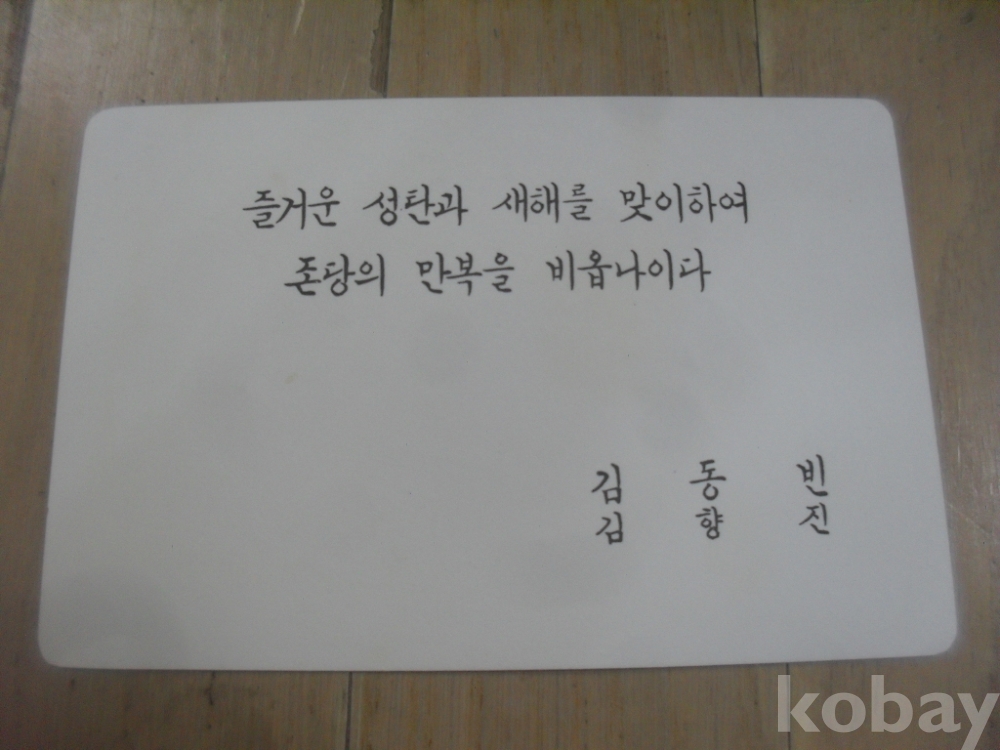 즐거운 성탄과 새해를 맞이하여
존당의 만복을 비옵나이다
김 동 빈
김 향 진
kobay